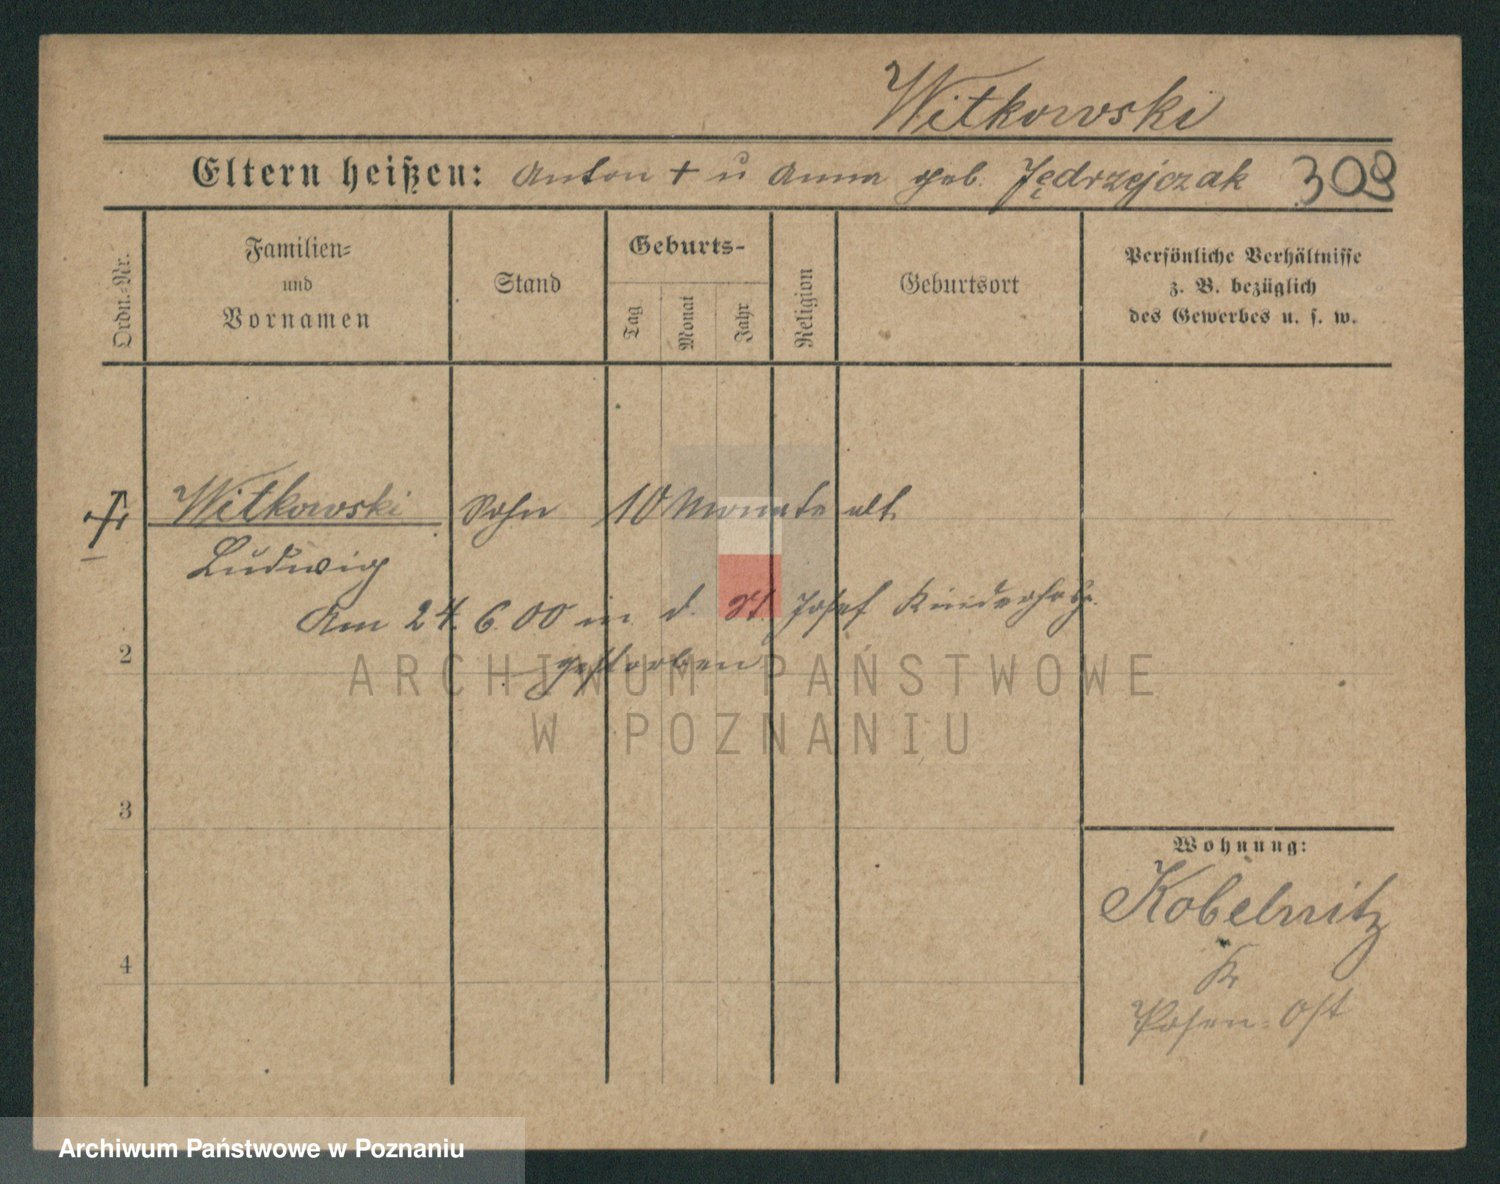 Witkowski
Eltern heißen: Anton + u Anna geb. Jędrzejczak 309
Ordn.-Nr.
Familien-
und
Vornamen
Stand
Geburts-
Tag
Monat
Jahr
Religion
Geburtsort
Persönliche Verhältnisse
z. B. bezüglich
des Gewerbes u. s. w.
Witkowski Sohn 10 Monate alt.
Ludwig
Am 24. 6. 00 in d. St Josef
gestorben
2
3
4
Wohnung:
Kobelnitz
Kr
Posen-Ost
ARCHIWUM PAŃSTWOWE
W POZNANIU
Archiwum Państwowe w Poznaniu